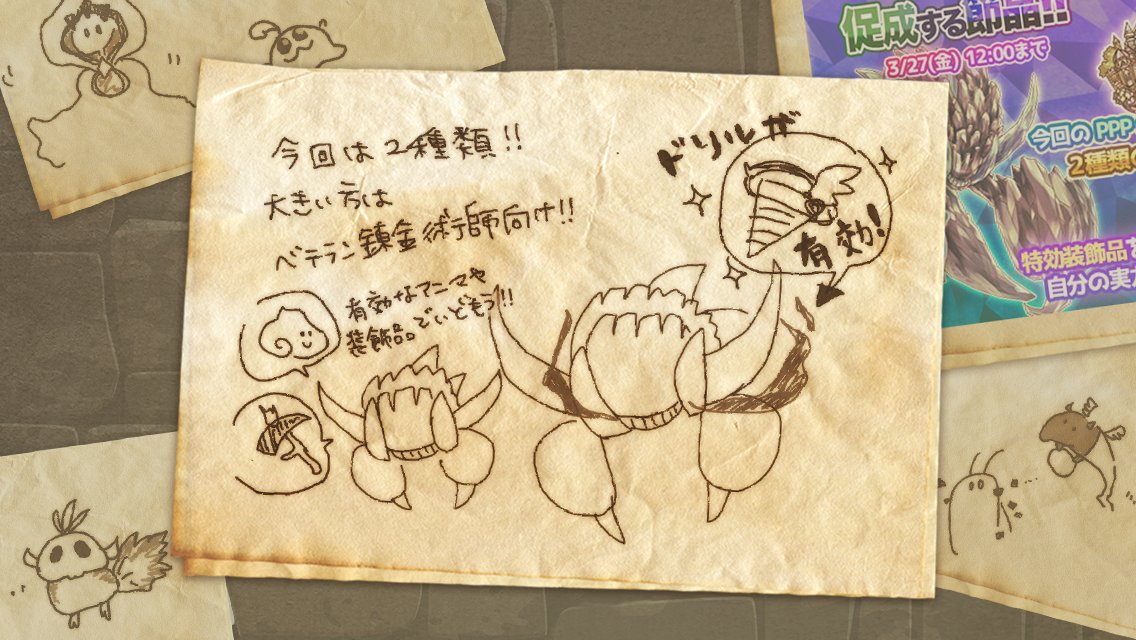 今回は2種類!!
大きい方は
ベテラン錬金術師向け!!
有効なアニマや
装飾品でいどもう!!
ドリルが
有効!
促成する節晶!!
3/27(金) 12:00まで
今回のPPP
2種類
特効装飾品
自分の実